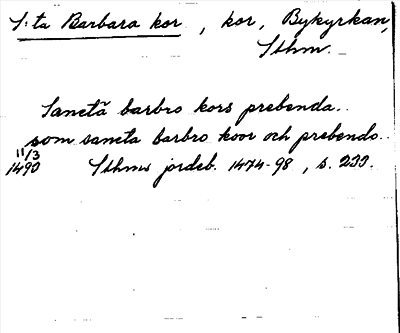 S:ta Barbara kor, kor, Bykyrkan,
Sthm.
Sanctā barbro kors prebenda..
som sancta barbro koor och prebendo..
11/3
1490 Sthms jordeb. 1474-98, s. 233.